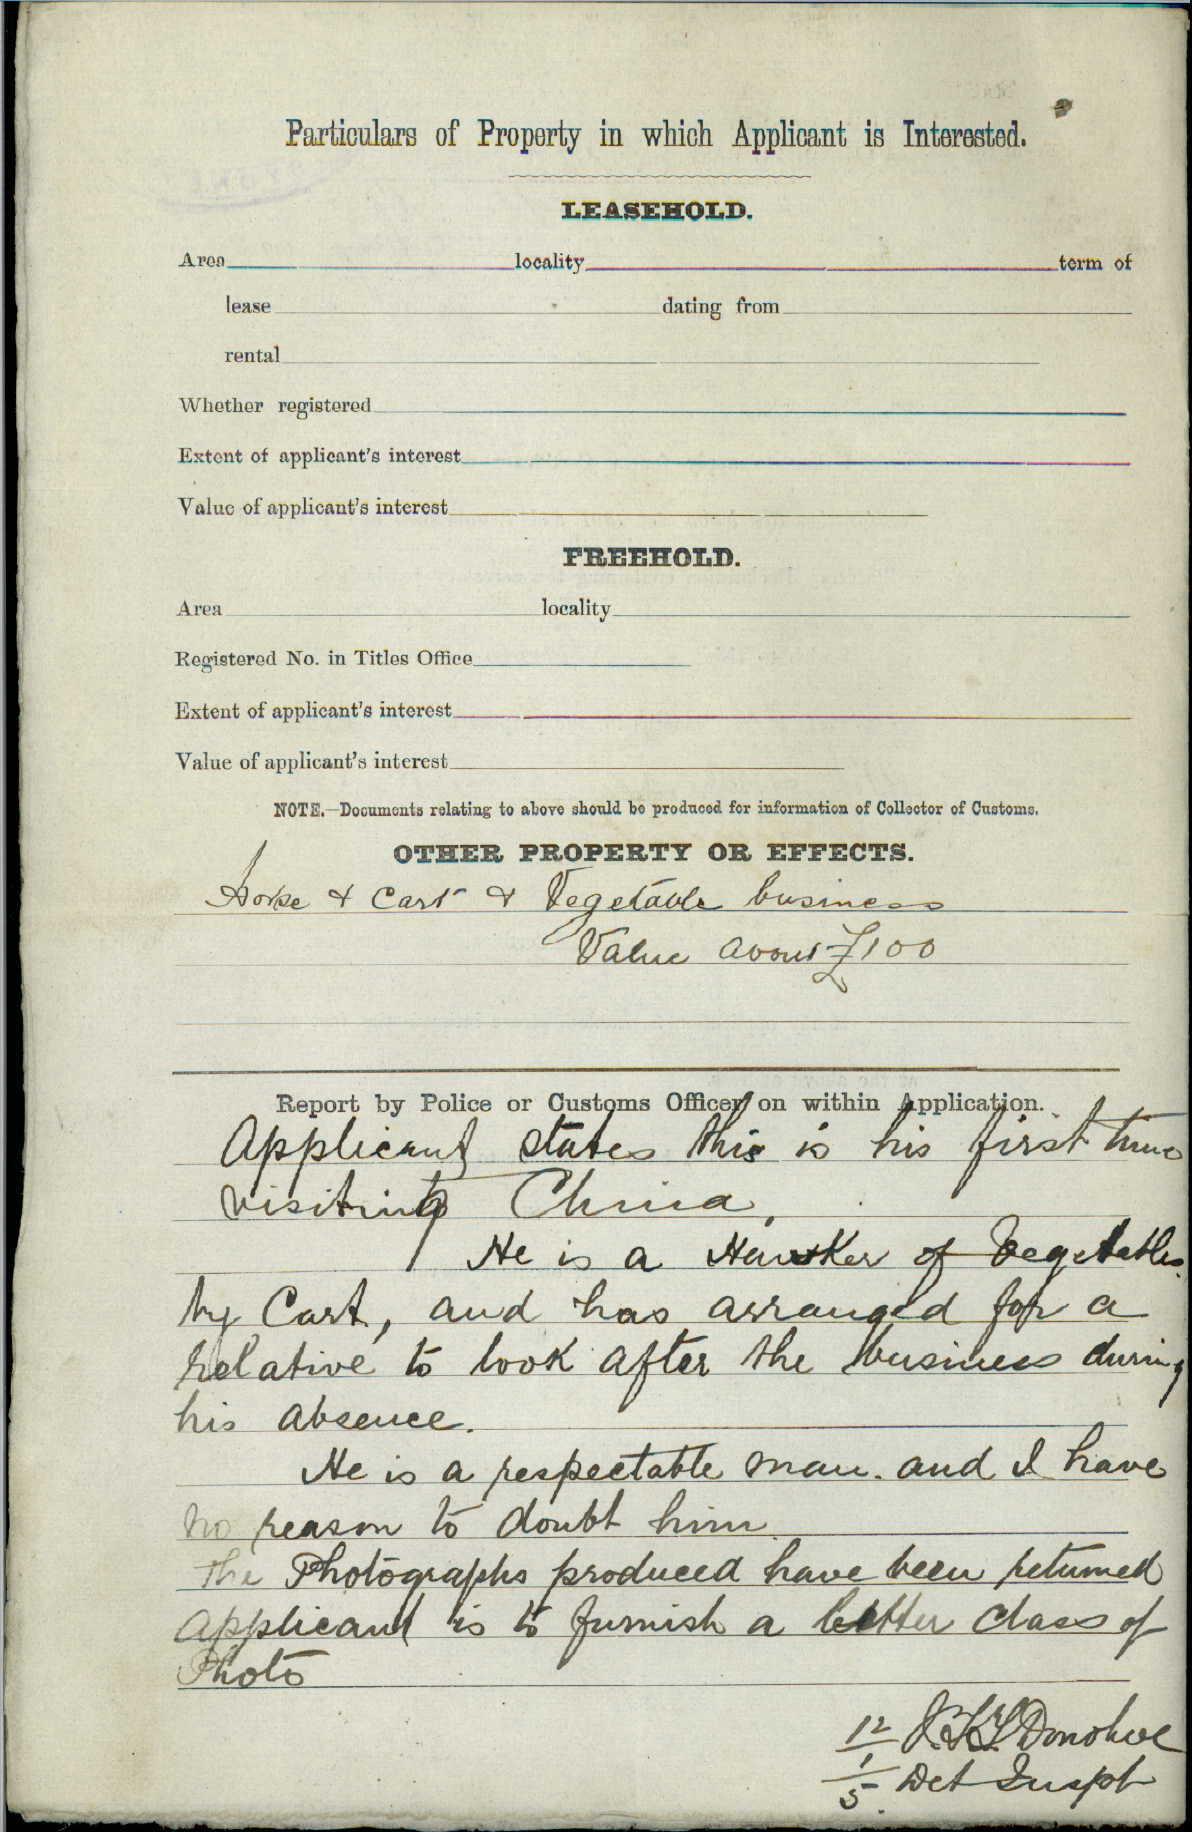 Particulars of Property in which Applicant is Interested.
LEASEHOLD.
Area locality term of
lease dating from
rental
Whether registered
Extent of applicant's interest
Value of applicant's interest
FREEHOLD.
Area locality
Registered No. in Titles Office
Extent of applicant's interest
Value of applicant's interest
NOTE.—Documents relating to above should be produced for information of Collector of Customs.
OTHER PROPERTY OR EFFECTS.
Horse & Cart & Vegetable business
Value about £100
Report by Police or Customs Officer on within Application.
Applicant states this is his first time
visiting China,
He is a Hawker of Vegetables
by Cart, and has arranged for a
relative to look after the business during
his absence.
He is a respectable man. and I have
no reason to doubt him.
The Photographs produced have been returned
Applicant is to furnish a better class of
Photo
12 Donohue
1
5. Det Inspt